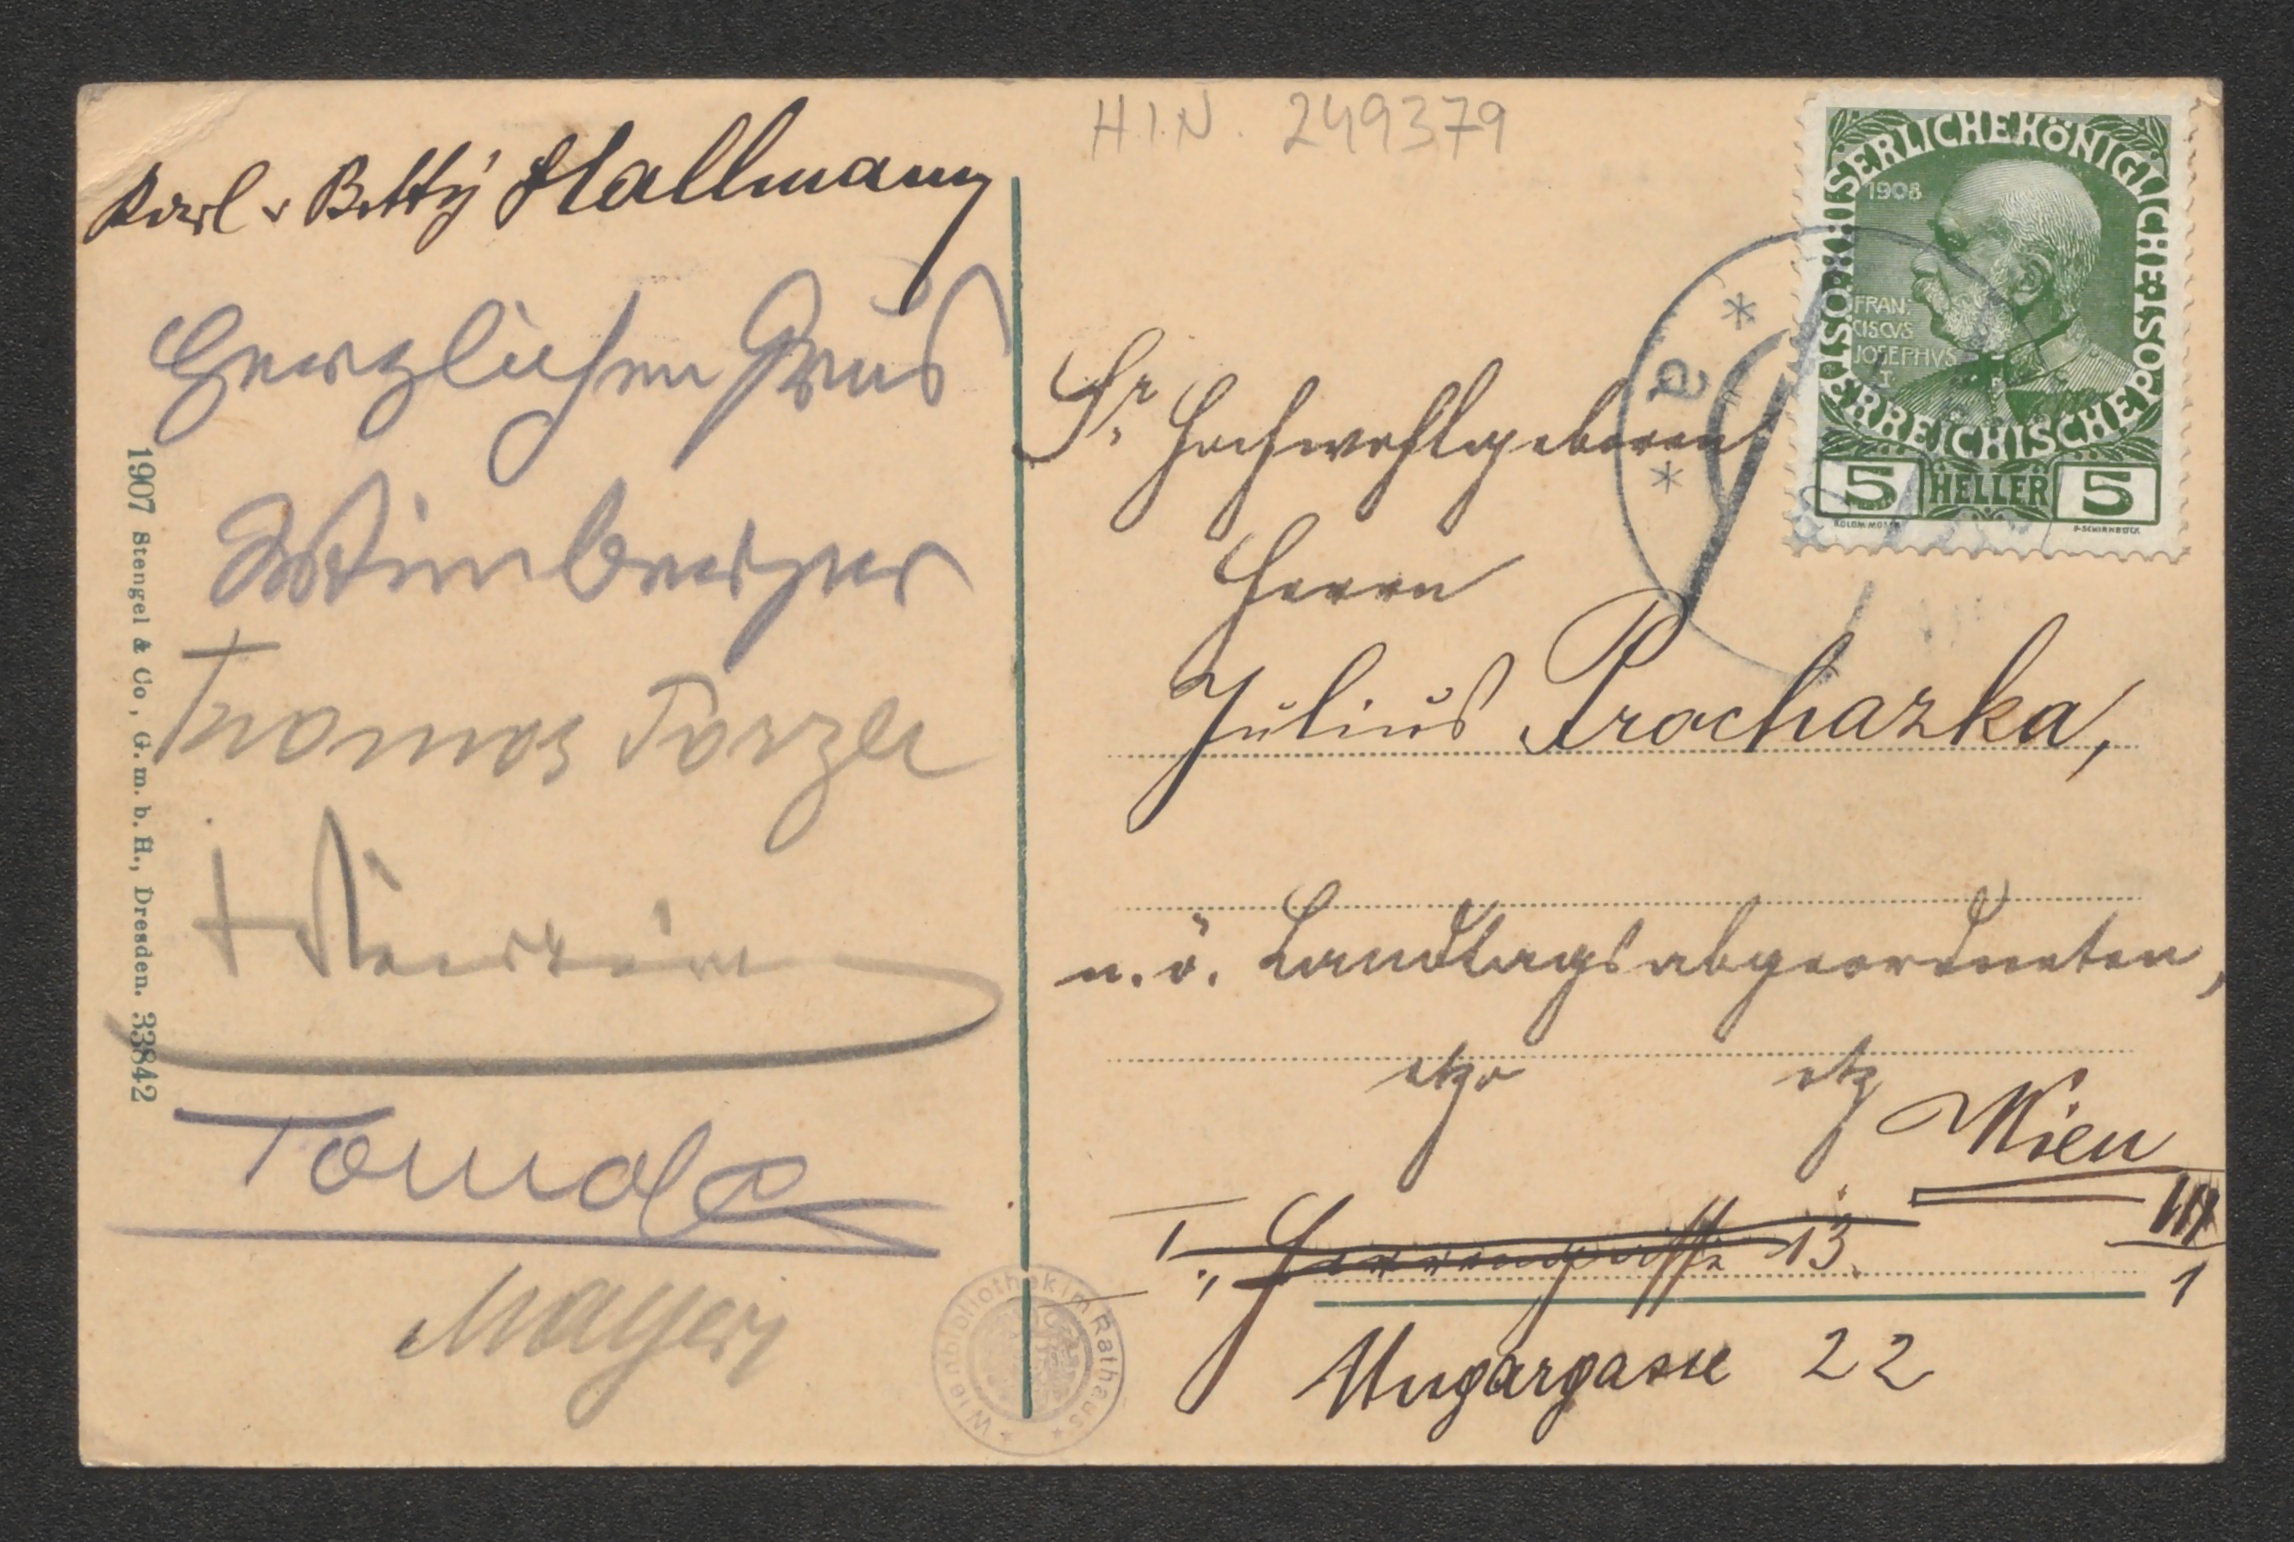 H.I.N. 249379
Karl u Betty Hallmann
Herzlichen Grus
Wimberger
Thomas Porzer
Tomola
Mayer
1907 Stengel & Co, G. m. b. H., Dresden. 33842
KAISERLICHE KÖNIGLICHE ÖSTERREICHISCHE POST
1908
FRAN:
CISCVS
JOSEPHVS
I.
5 HELLER 5
KOLOM. MOSER
F. SCHIRNBÖCK
a
Sr. Hochwohlgeboren
Herrn
Julius Prochazka,
n. ö. Landtagsabgeordneten,
etz etz
Wien
I., Herrengasse 13.
III
1
Ungargasse 22
Wienbibliothek im Rathaus